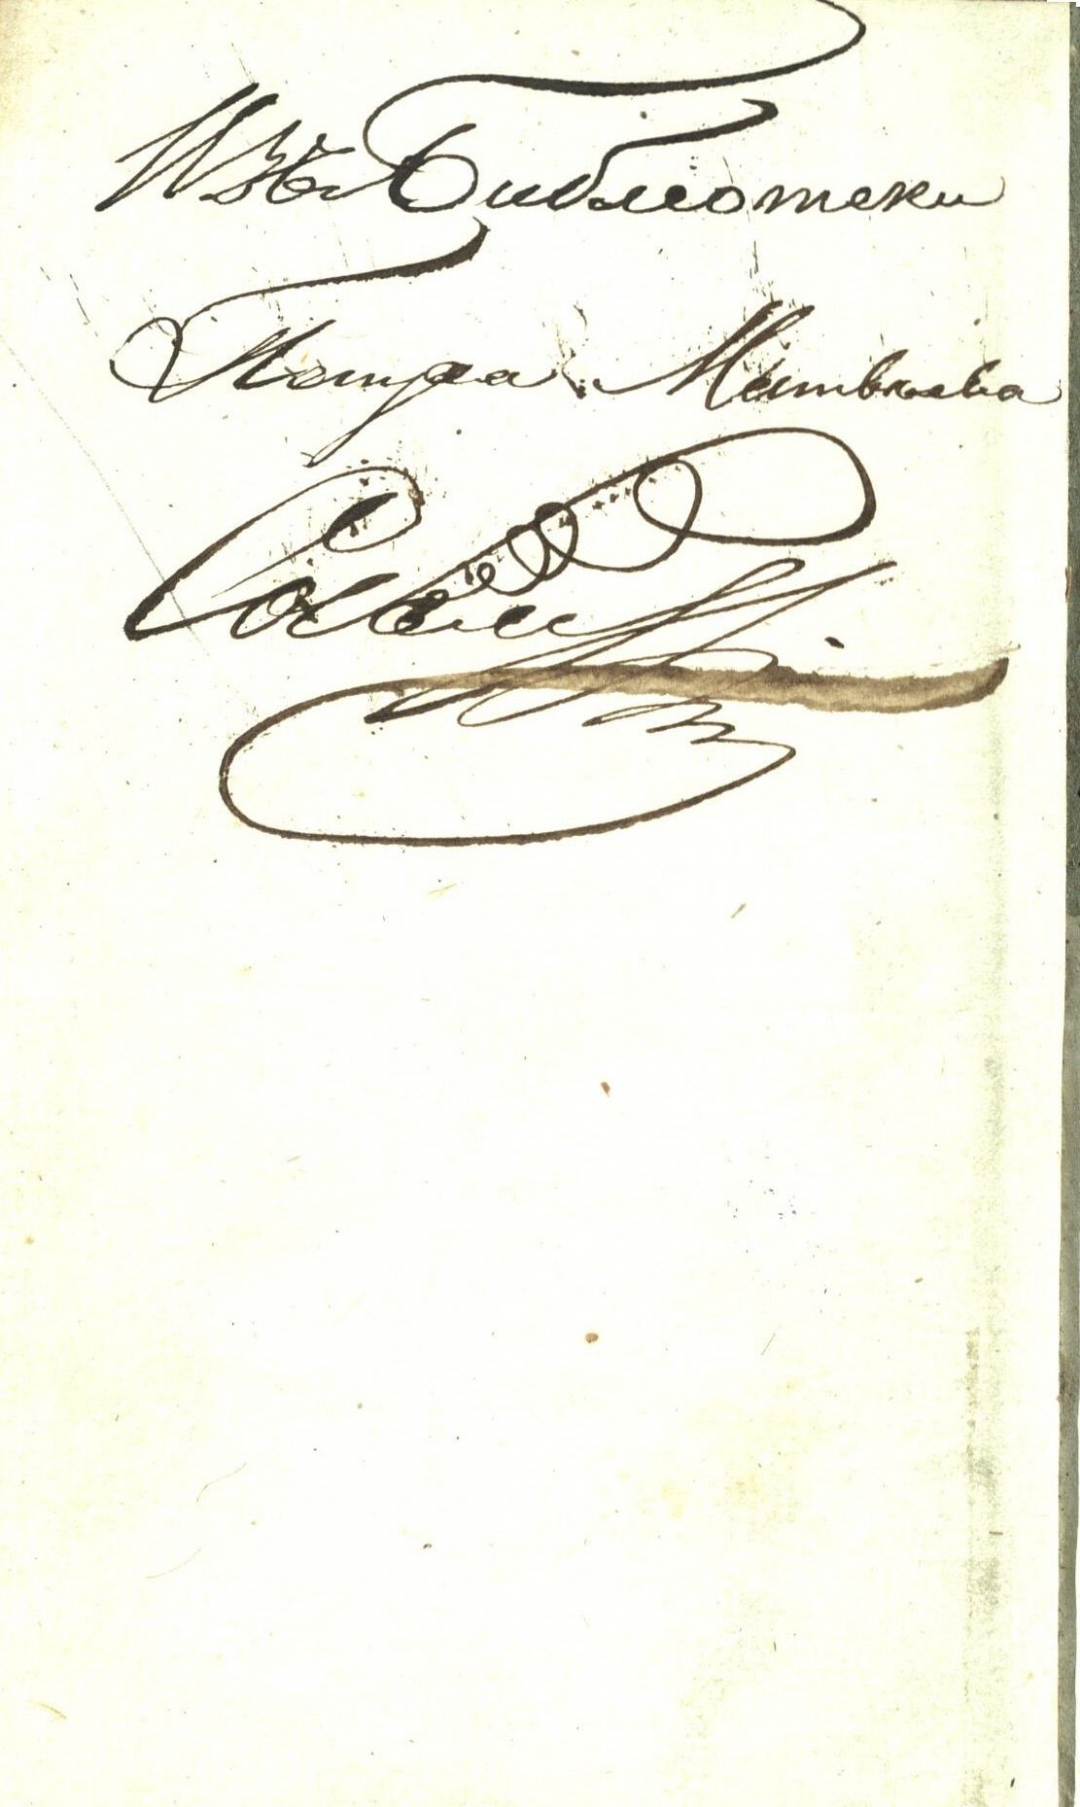 Изъ Библiотеки
Петра Матвѣева